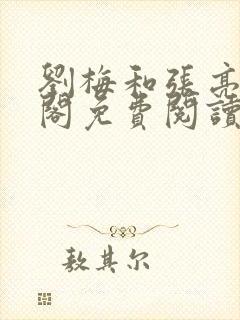 劉梅和張亮
閣免費閱讀
敖其尔